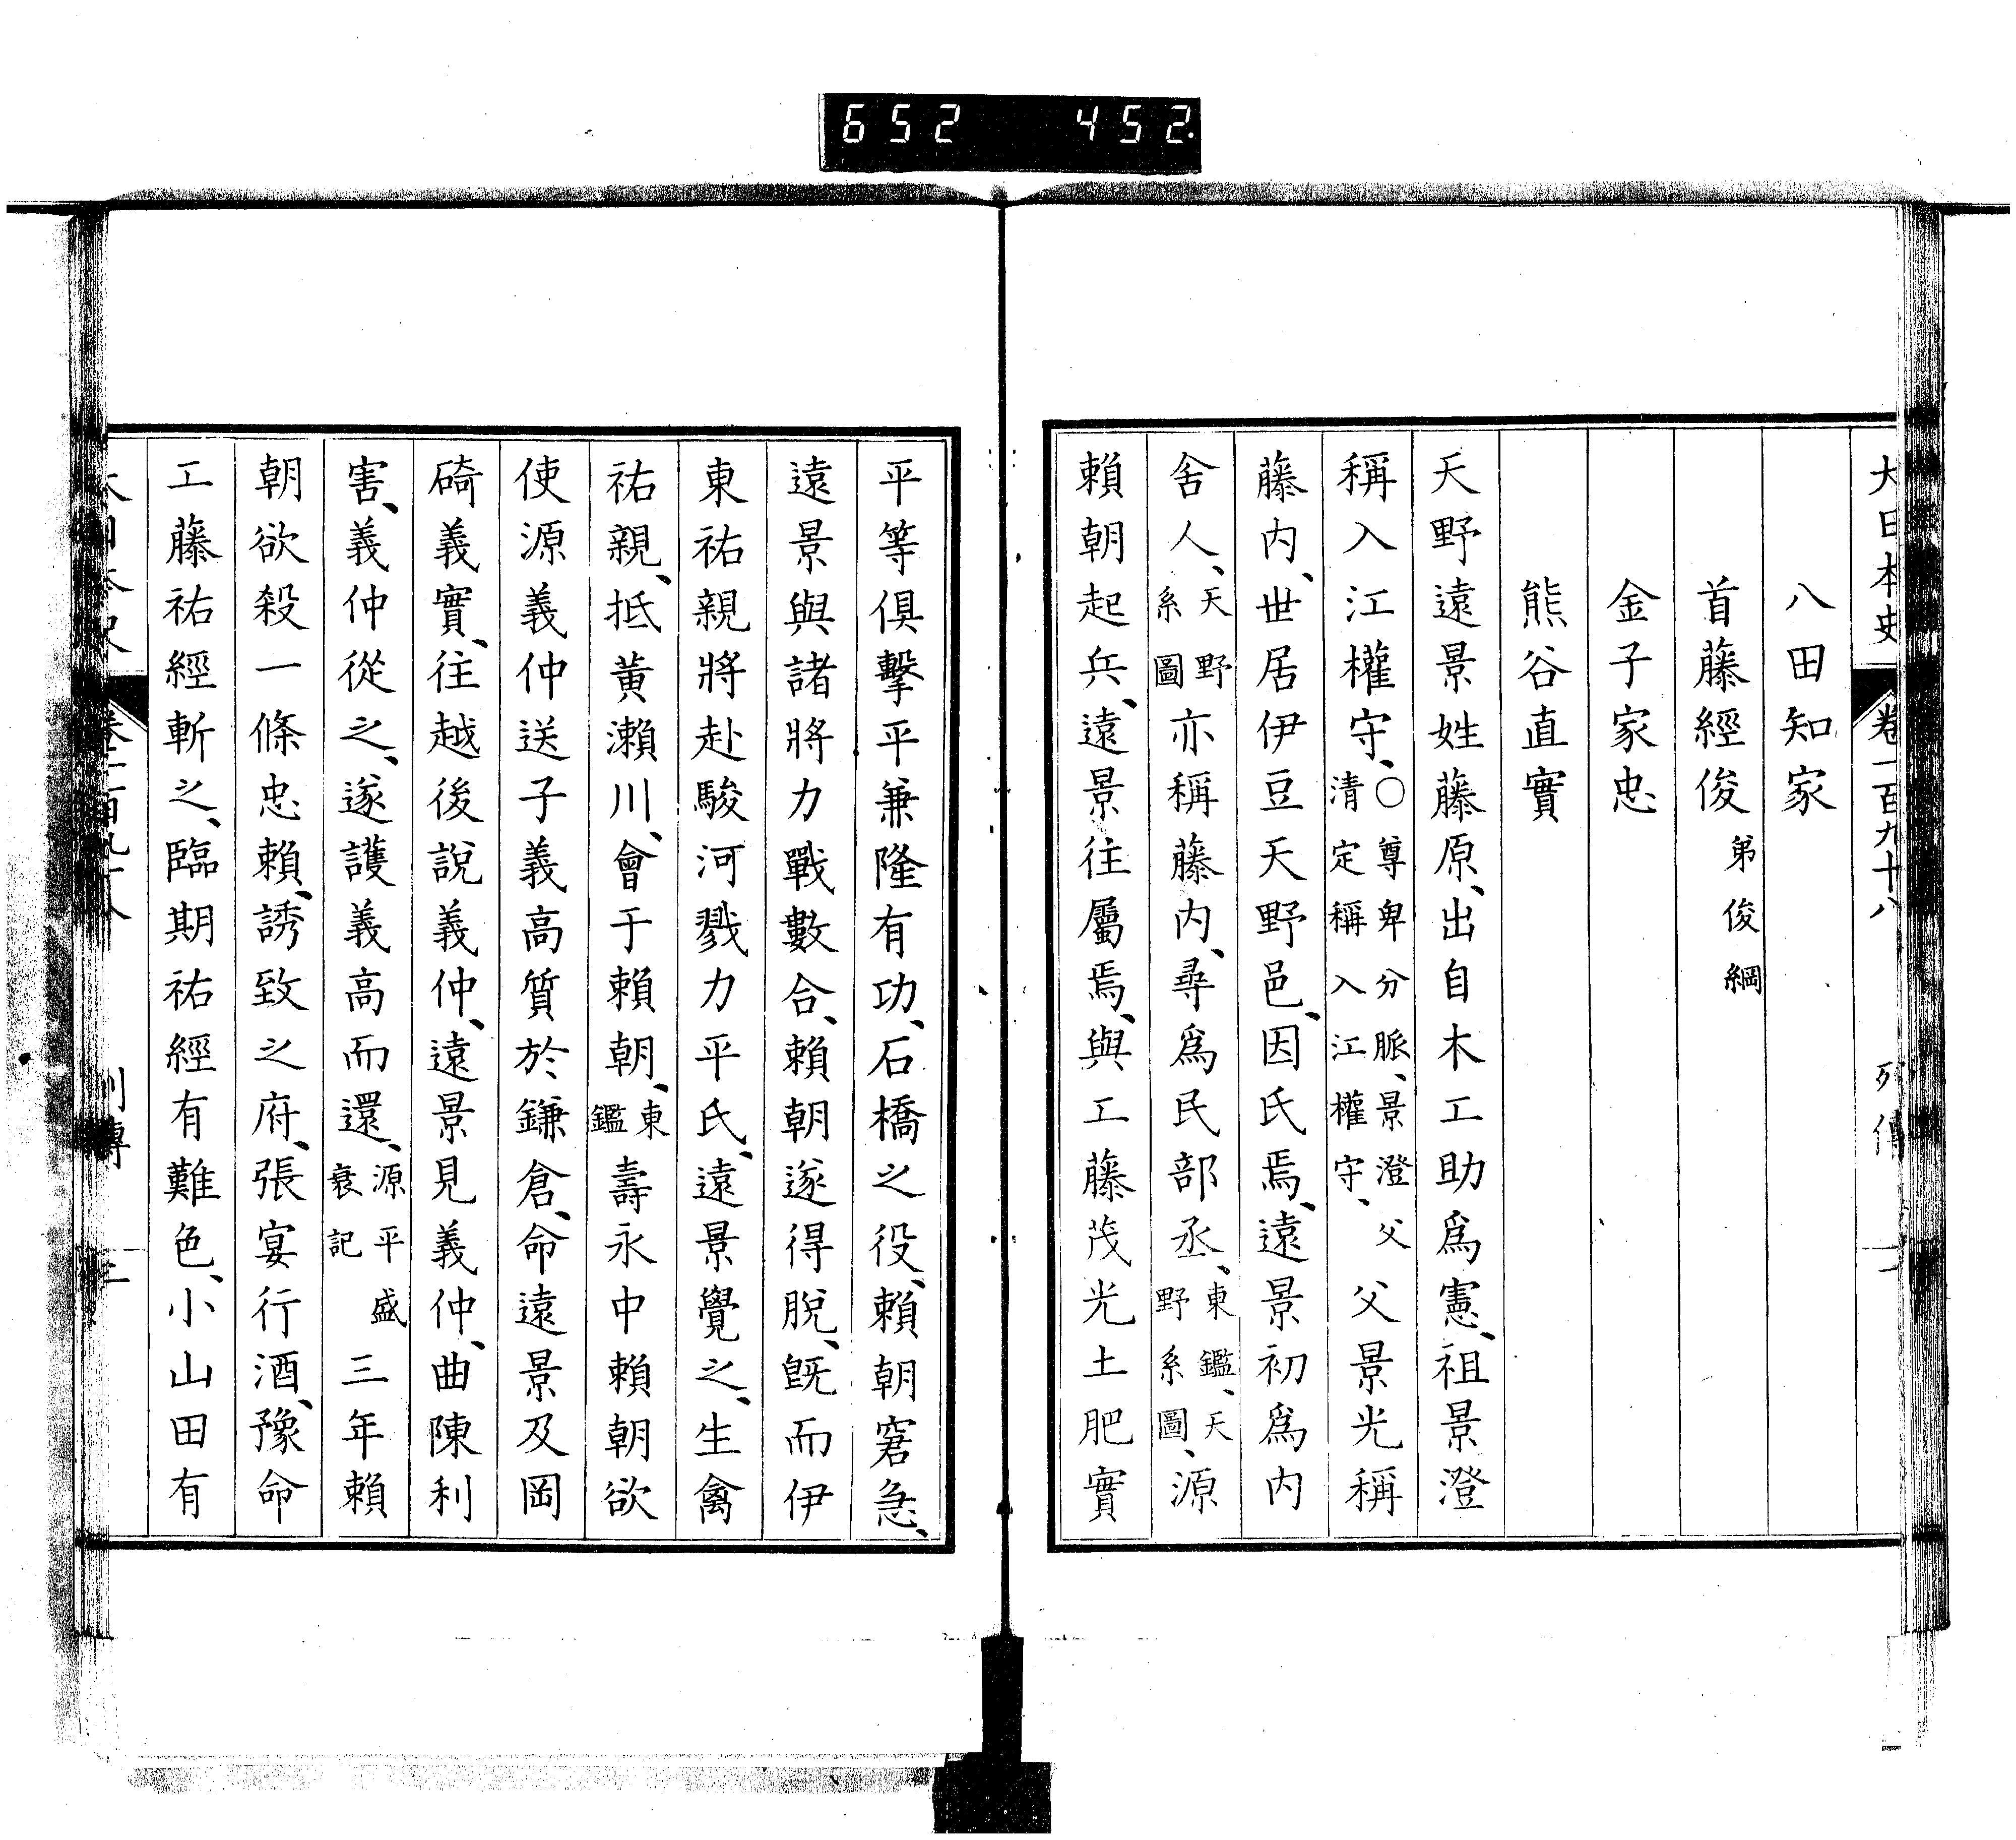 652 452
大日本史 卷一百九十八 列傳 一
八田知家
首藤經俊 弟俊綱
金子家忠
熊谷直實
天野遠景姓藤原、出自木工助爲憲、祖景澄
稱入江權守、○尊卑分脈、景澄父清定稱入江權守、父景光稱
藤内、世居伊豆天野邑、因氏焉、遠景初爲内
舍人、天野系圖亦稱藤内、尋爲民部丞、東鑑、天野系圖、源
賴朝起兵、遠景往屬焉、與工藤茂光土肥實
平等俱擊平兼隆有功、石橋之役、賴朝窘急、
遠景與諸將力戰數合、賴朝遂得脫、既而伊
東祐親將赴駿河戮力平氏、遠景覺之、生禽
祐親、抵黃瀨川、會于賴朝、東鑑壽永中賴朝欲
使源義仲送子義高質於鎌倉、命遠景及岡
碕義實、往越後說義仲、遠景見義仲、曲陳利
害、義仲從之、遂護義高而還、源平盛衰記三年賴
朝欲殺一條忠賴、誘致之府、張宴行酒、豫命
工藤祐經斬之、臨期祐經有難色、小山田有